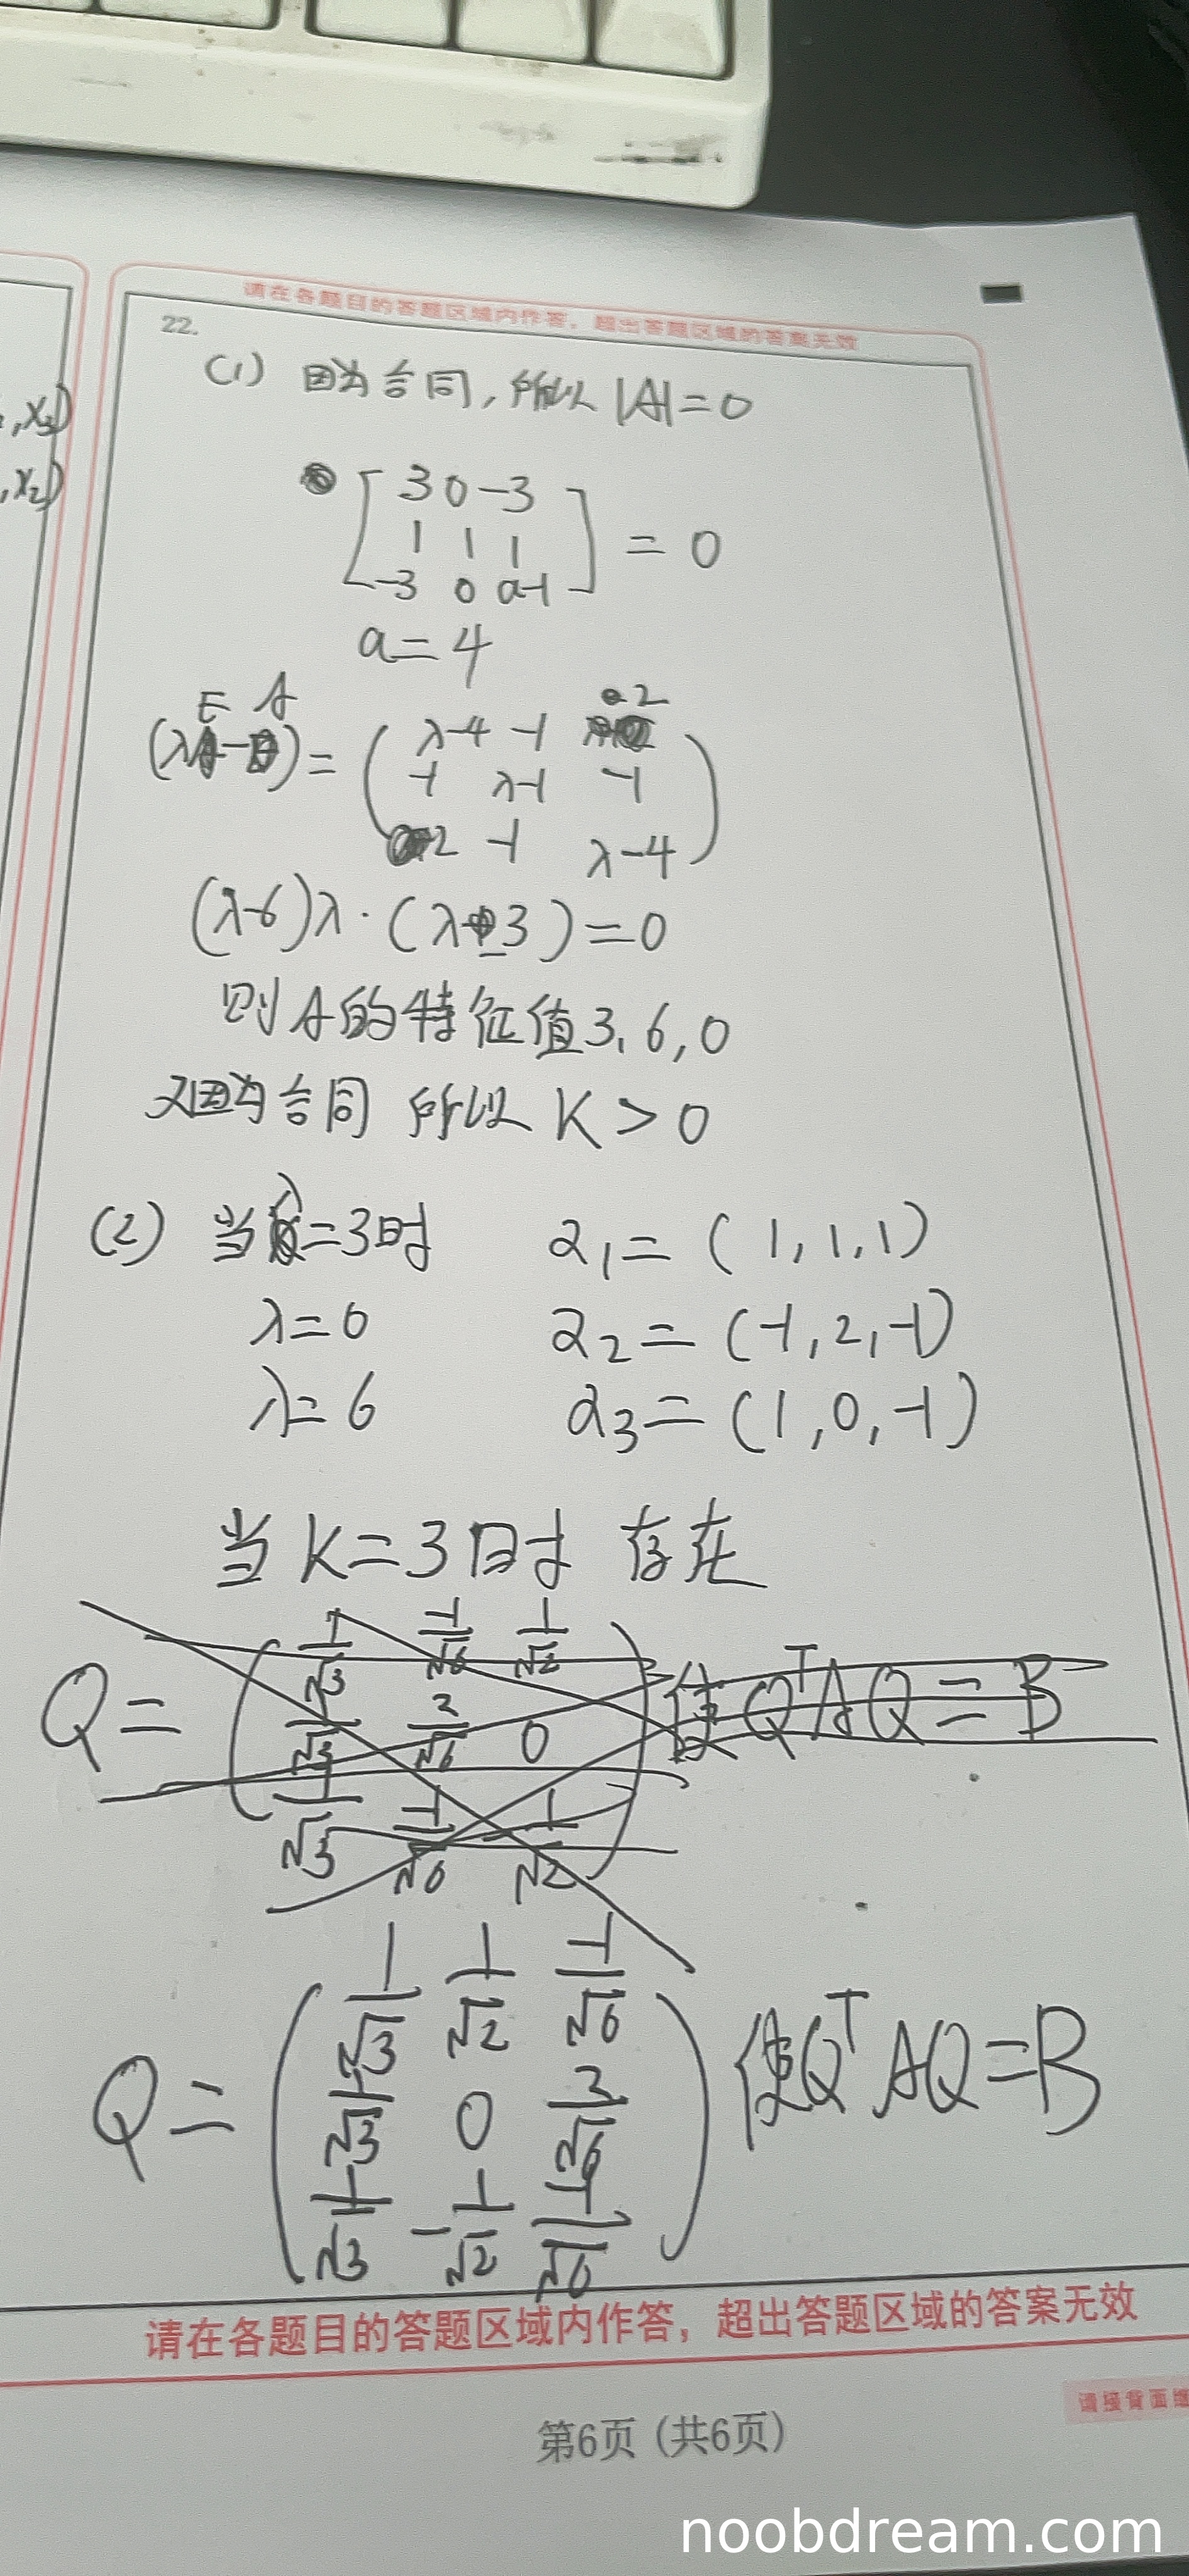 请在各题目的答题区域内作答，超出答题区域的答案无效
22.
,x3)
,x2)
(1) 因为合同,所以 |A|=0
[ 3 0 -3
1 1 1
-3 0 a-1 ] = 0
a=4
(λE-A) = ( λ-4 -1 2
-1 λ-1 -1
2 -1 λ-4 )
(λ-6)λ·(λ-3)=0
则A的特征值3,6,0
又因为合同 所以 K>0
(2) 当λ=3时 α1=(1,1,1)
λ=0 α2=(-1,2,-1)
λ=6 α3=(1,0,-1)
当K=3时 存在
Q= ( 1/√3 -1/√6 1/√2
1/√3 2/√6 0
1/√3 -1/√6 -1/√2 ) 使Q^T AQ=B
Q= ( 1/√3 1/√2 -1/√6
1/√3 0 2/√6
1/√3 -1/√2 -1/√6 ) 使Q^T AQ=B
请在各题目的答题区域内作答，超出答题区域的答案无效
请接背面
第6页（共6页）
noobdream.com